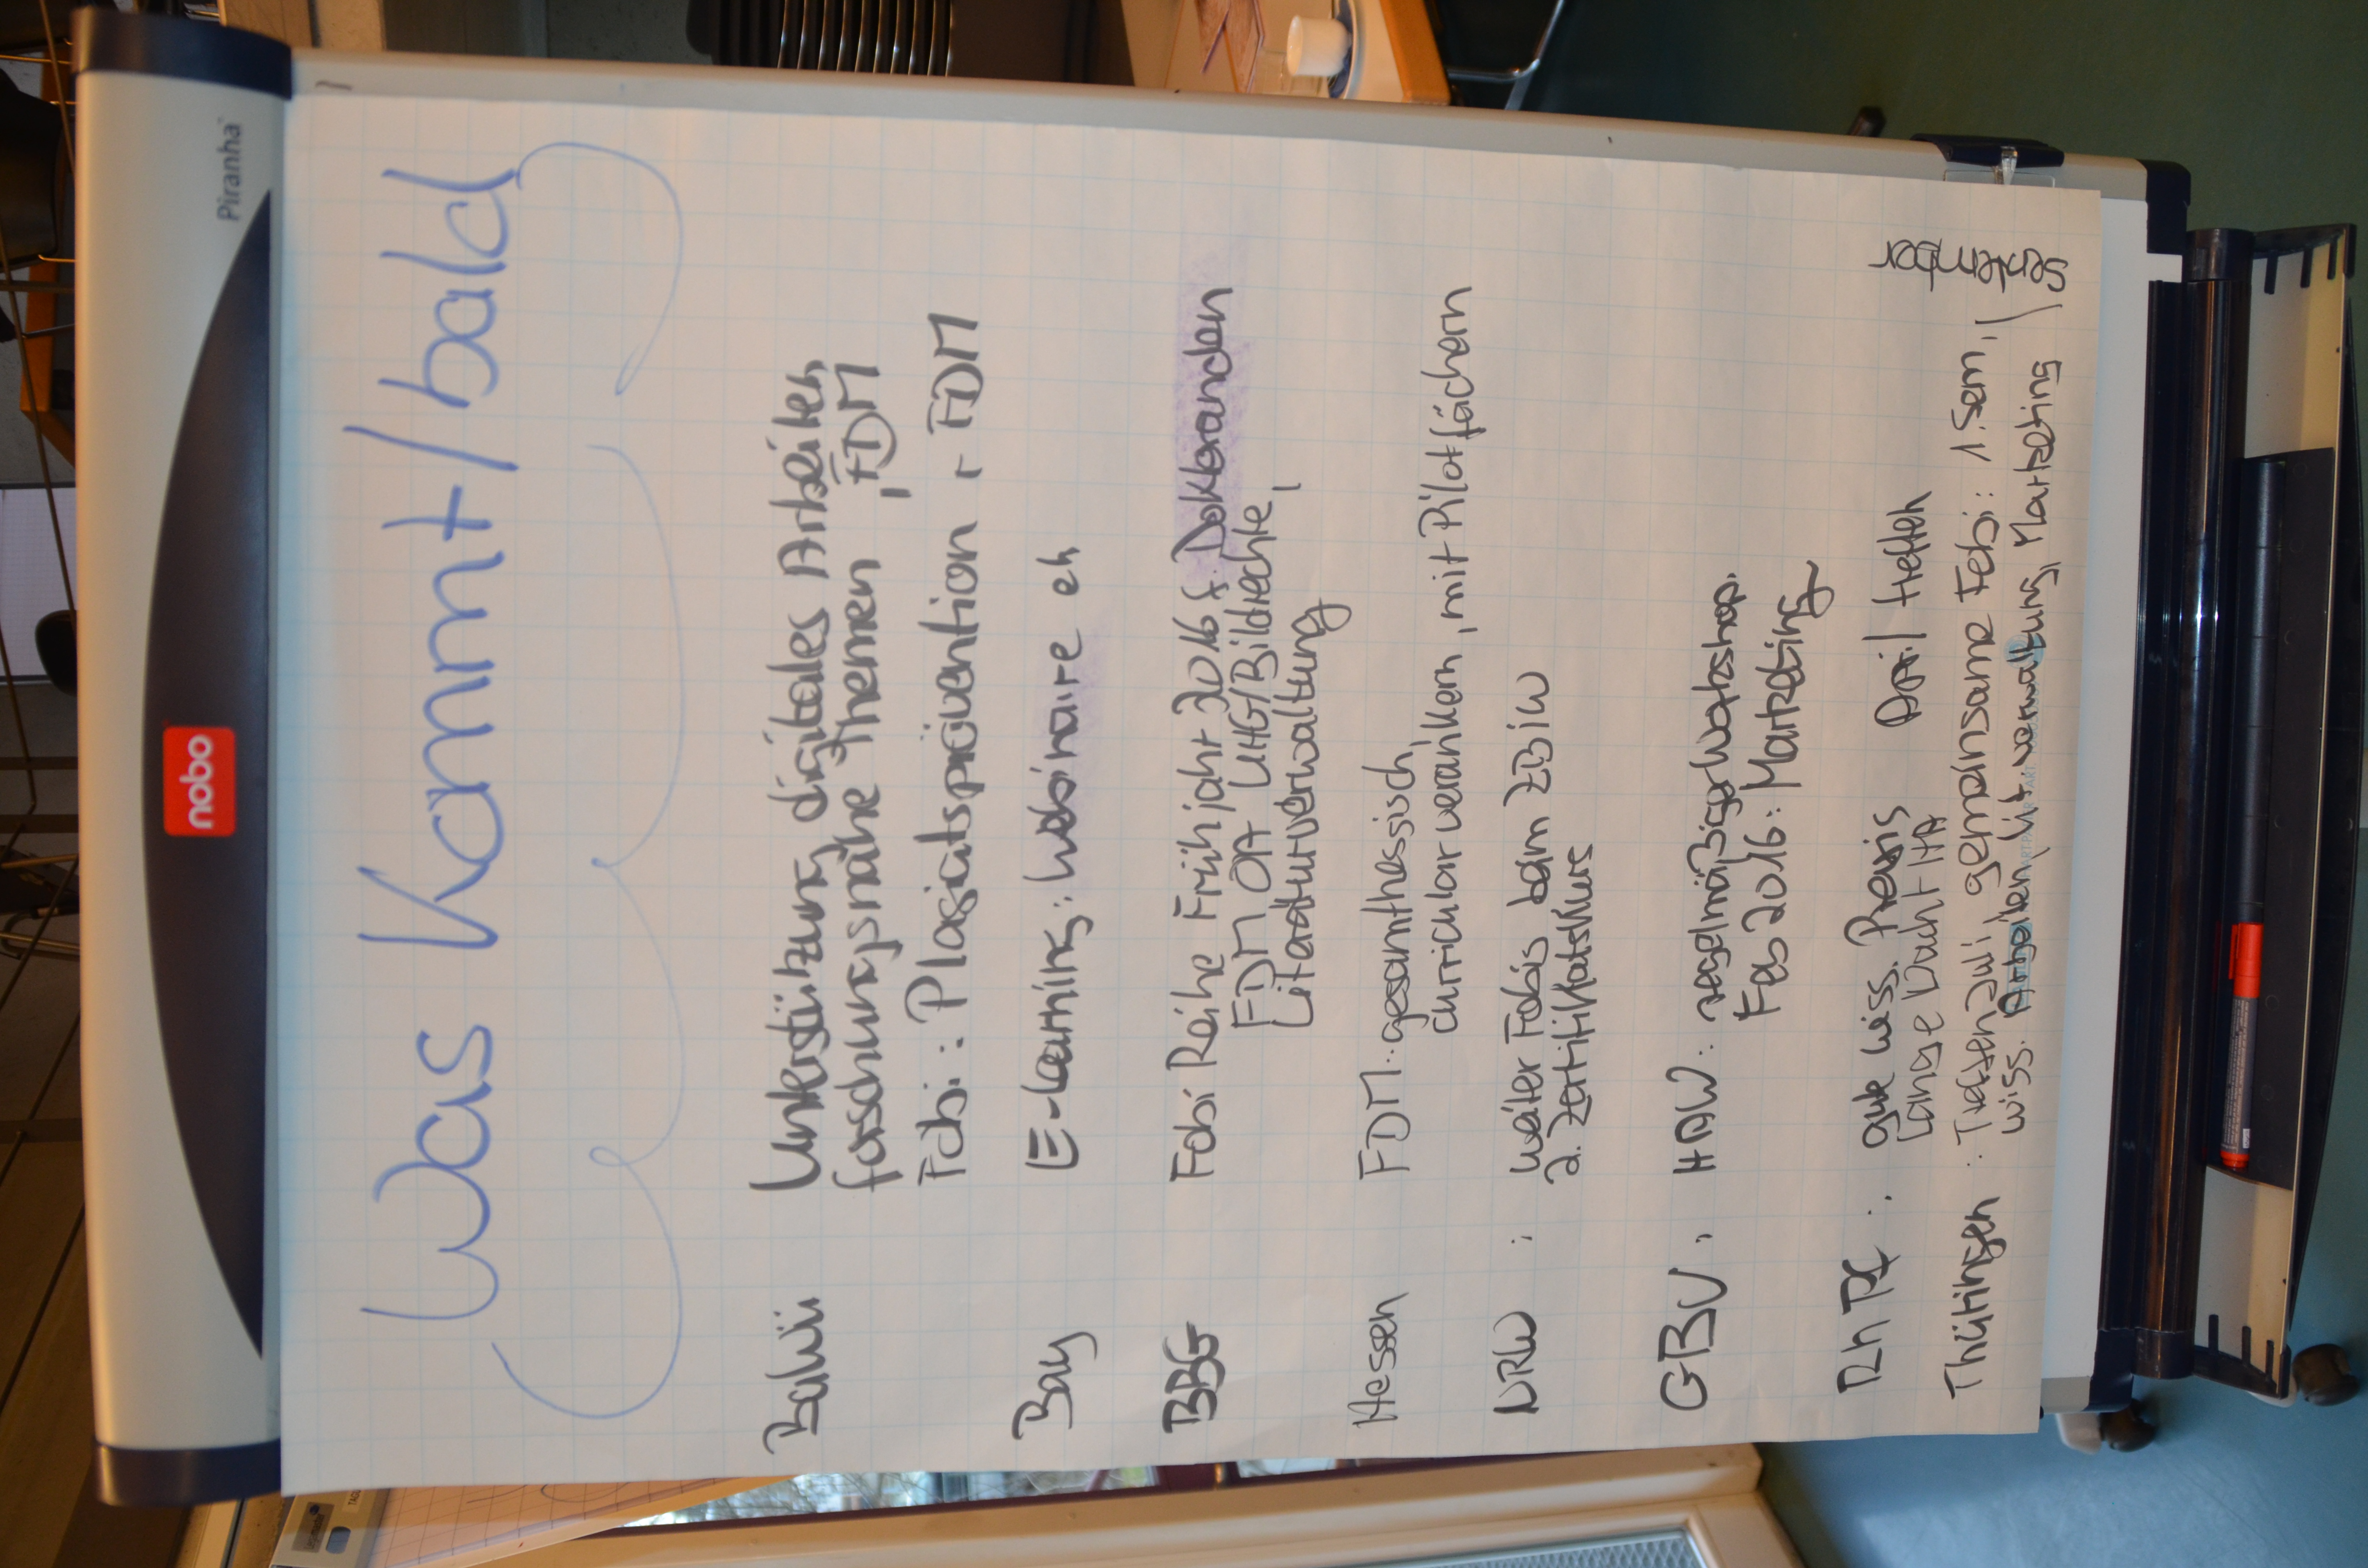 Piranha
nobo
Was kommt/bald
BaWü: Unterstützung digitales Arbeiten,
forschungsnahe Themen, FDM
Fobi: Plagiatsprävention, FDM
Bay E-Learning: Webinaire eh
BBG Fobi Reihe Frühjahr 2016 f. Doktoranden
FDM OA UHG/Bildrechte,
Literaturverwaltung
Hessen FDM: gesamthessisch,
curricular verankern, mit Pilotfächern
NRW : weiter Fobis beim ZBIW
2. Zertifikatskurs
GBV: HAW: regelmäßiger Workshop.
Feb 2016: Marketing
Rh Pf: gute wiss. Praxis April treffen
Lange Nacht HA
Thüringen: Treffen Juli, gemeinsame Fobi: 1. Sem, /
wiss. Arbeiten, Lit.verwaltung, Marketing /
September